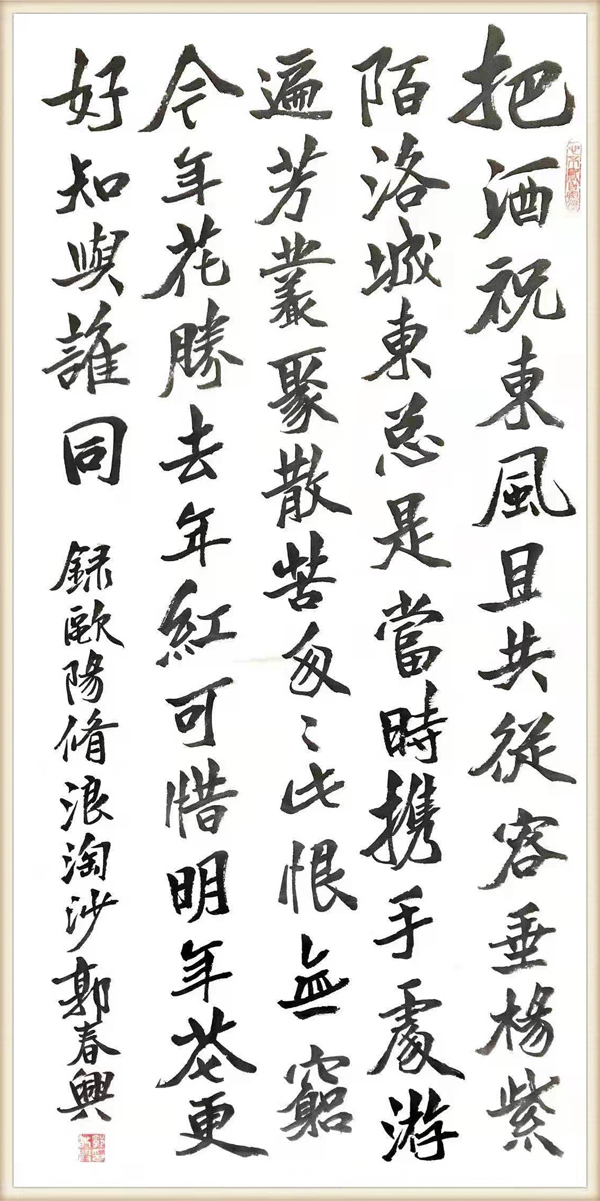 把酒祝東風且共從容垂楊紫
陌洛城東总是當時携手處游
遍芳叢聚散苦匆〻此恨無窮
今年花勝去年紅可惜明年花更
好知與誰同 録歐陽脩浪淘沙郭春興